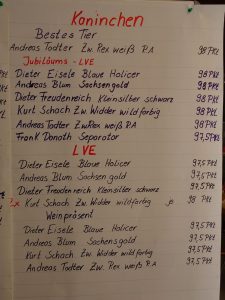 Koninchen
Bestes Tier
Andreas Todter Zw. Rex weiß R.A 98 Pkt
Jubilöums - LVE
Dieter Eisele Blaue Holicer 98 Pkt
Andreas Blum Sachsengold 98 Pkt
Dieter Freudenreich Kleinsilber schwarz 98 Pkt
Kurt Schach Zw. Widder wildfarbig 98 Pkt
Andreas Todter Zw. Rex weiß R.A 98 Pkt
Frank Donath Separator 97,5 Pkt
LVE
Dieter Eisele Blaue Holicer 97,5 Pkt
Andreas Blum Sachsengold 97,5 Pkt
Dieter Freudenreich Kleinsilber schwarz 97,5 Pkt
2x Kurt Schach Zw. Widder wildfarbig je 98 Pkt
Weinpräsent
Dieter Eisele Blaue Holicer 97,5 Pkt
Andreas Blum Sachsengold 97,5 Pkt
Kurt Schach Zw. Widder wildfarbig 97,5 Pkt
Andreas Todter Zw. Rex weiß R.A 97,5 Pkt